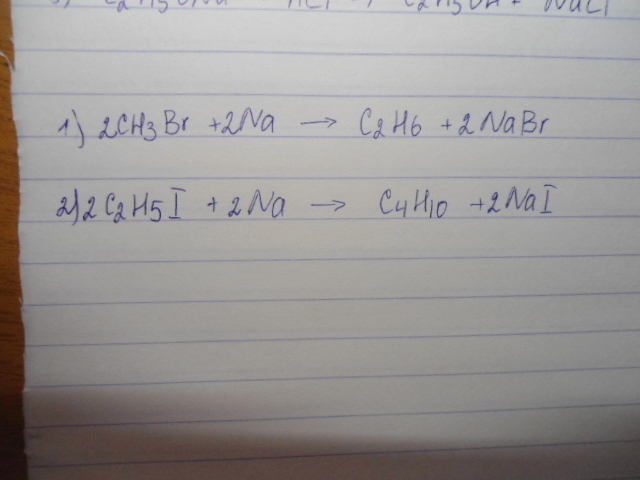 3) C2H5ONa HCl → C2H5OH + NaCl
1) 2CH3Br +2Na → C2H6 +2NaBr
2) 2C2H5I + 2Na → C4H10 +2NaI